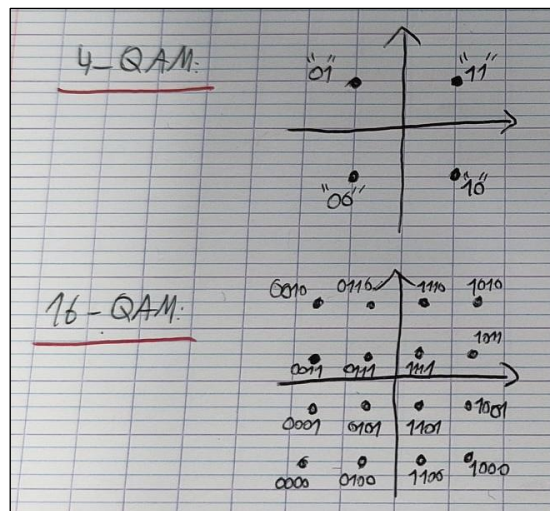 4-QAM:
"01" "11"
"00" "10"
16-QAM:
0010 0110 1110 1010
0011 0111 1111 1011
0001 0101 1101 1001
0000 0100 1100 1000